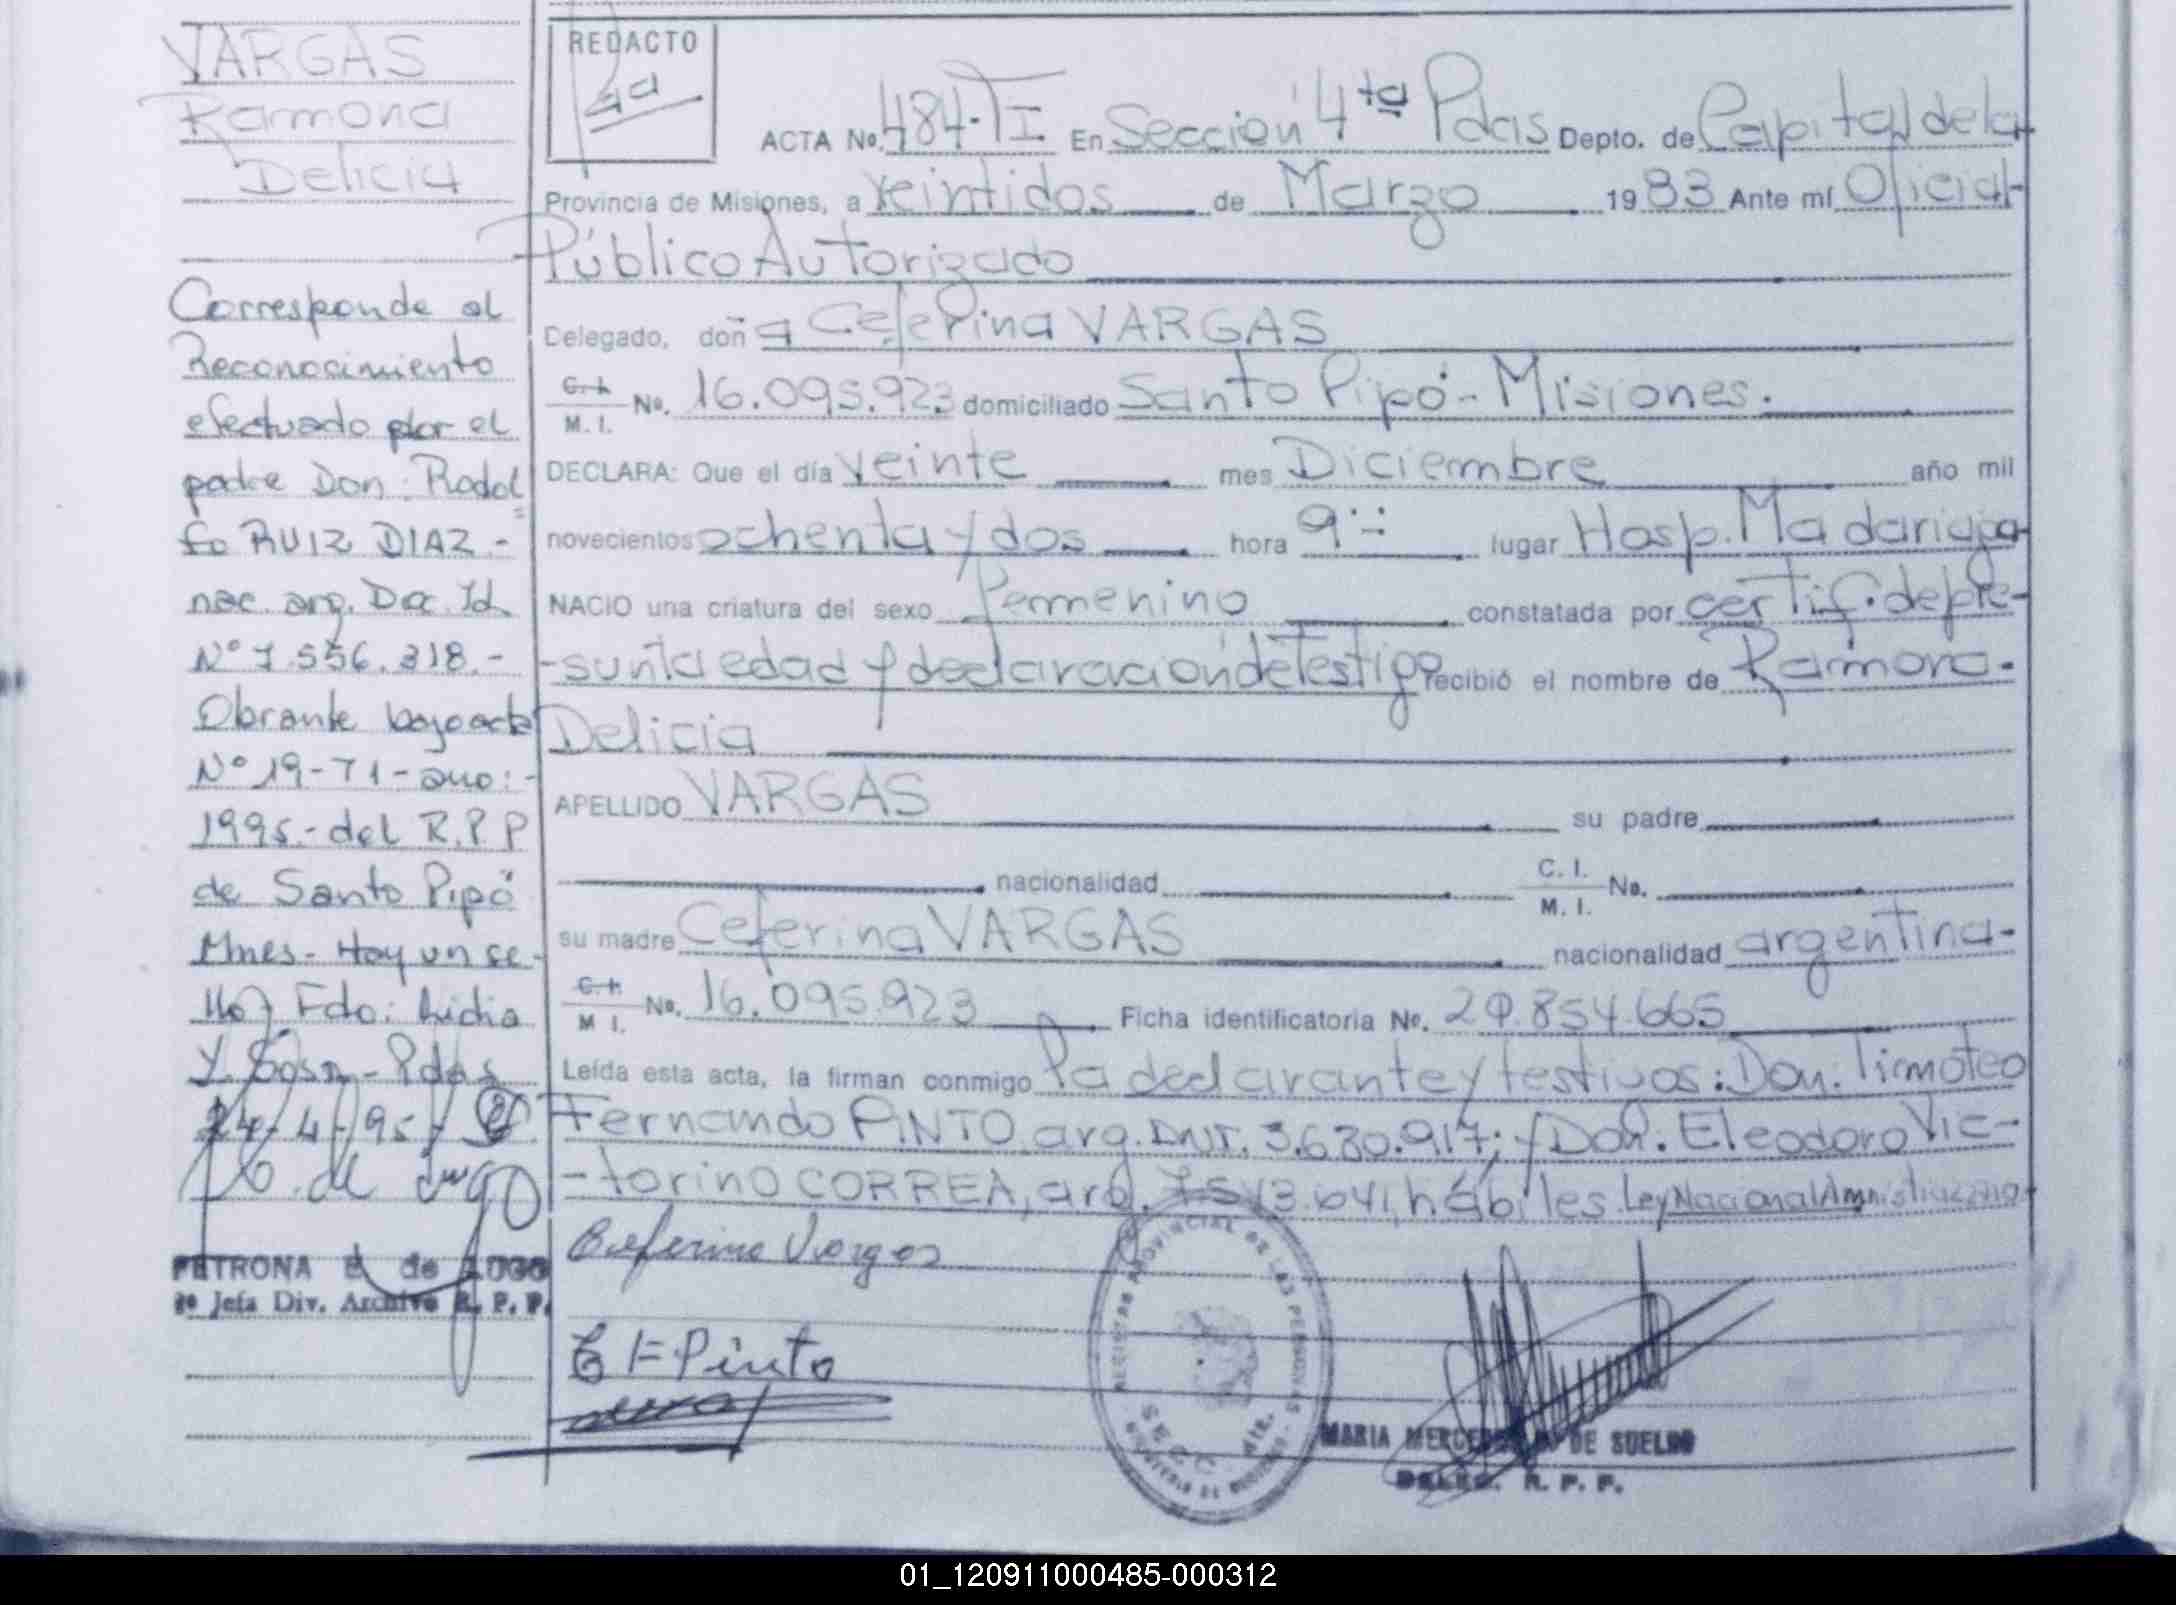 VARGAS
Ramona
Delicia
Corresponde al
Reconocimiento
efectuado por el
padre Don: Rodol
fo RUIZ DIAZ.-
nac. arg. Doc. Id.
Nº 7.556.318.-
Obrante bajo acta
Nº 19-T1-año:-
1995.-del R.P.P
de Santo Pipó
Mnes- Hay un se-
llo) Fdo: Lidia
Y. Sosa-Pdas
24/4/95/
PETRONA de LUGO
2º Jefa Div. Archivo R. P. P.
REDACTO
ACTA No. 484-TI En Sección 4ta Pdas Depto. de Capital de la
Provincia de Misiones, a veintidos de Marzo 1983 Ante mí Oficial
Público Autorizado
Delegado, doña Ceferina VARGAS
C. I.
M. I. No. 16.095.923 domiciliado Santo Pipó-Misiones.
DECLARA: Que el día veinte mes Diciembre año mil
novecientos ochenta y dos hora 9 lugar Hosp. Madariaga
NACIO una criatura del sexo femenino constatada por certif. de pre-
-sunta edad y declaración de Testigo recibió el nombre de Ramona-
Delicia
APELLIDO VARGAS su padre
nacionalidad C. I.
M. I. No.
su madre Ceferina VARGAS nacionalidad argentina-
C. I.
M I. No. 16.095.923 Ficha identificatoria No. 29.854.665
Leída esta acta, la firman conmigo la declarante y testigos: Don: Timoteo
Fernando PINTO, arg. DNI. 3.630.917; y Don: Eleodoro Vic-
-torino CORREA, arg. 7.543.641, hábiles. Ley Nacional Amnistia
Ceferina Vargas
T F Pinto
REGISTRO PROVINCIAL DE LAS PERSONAS
SECC. 4ta.
MINISTERIO DE GOBIERNO
MARIA MERCEDES DE SUELDO
DELEG. R. P. P.
01_120911000485-000312